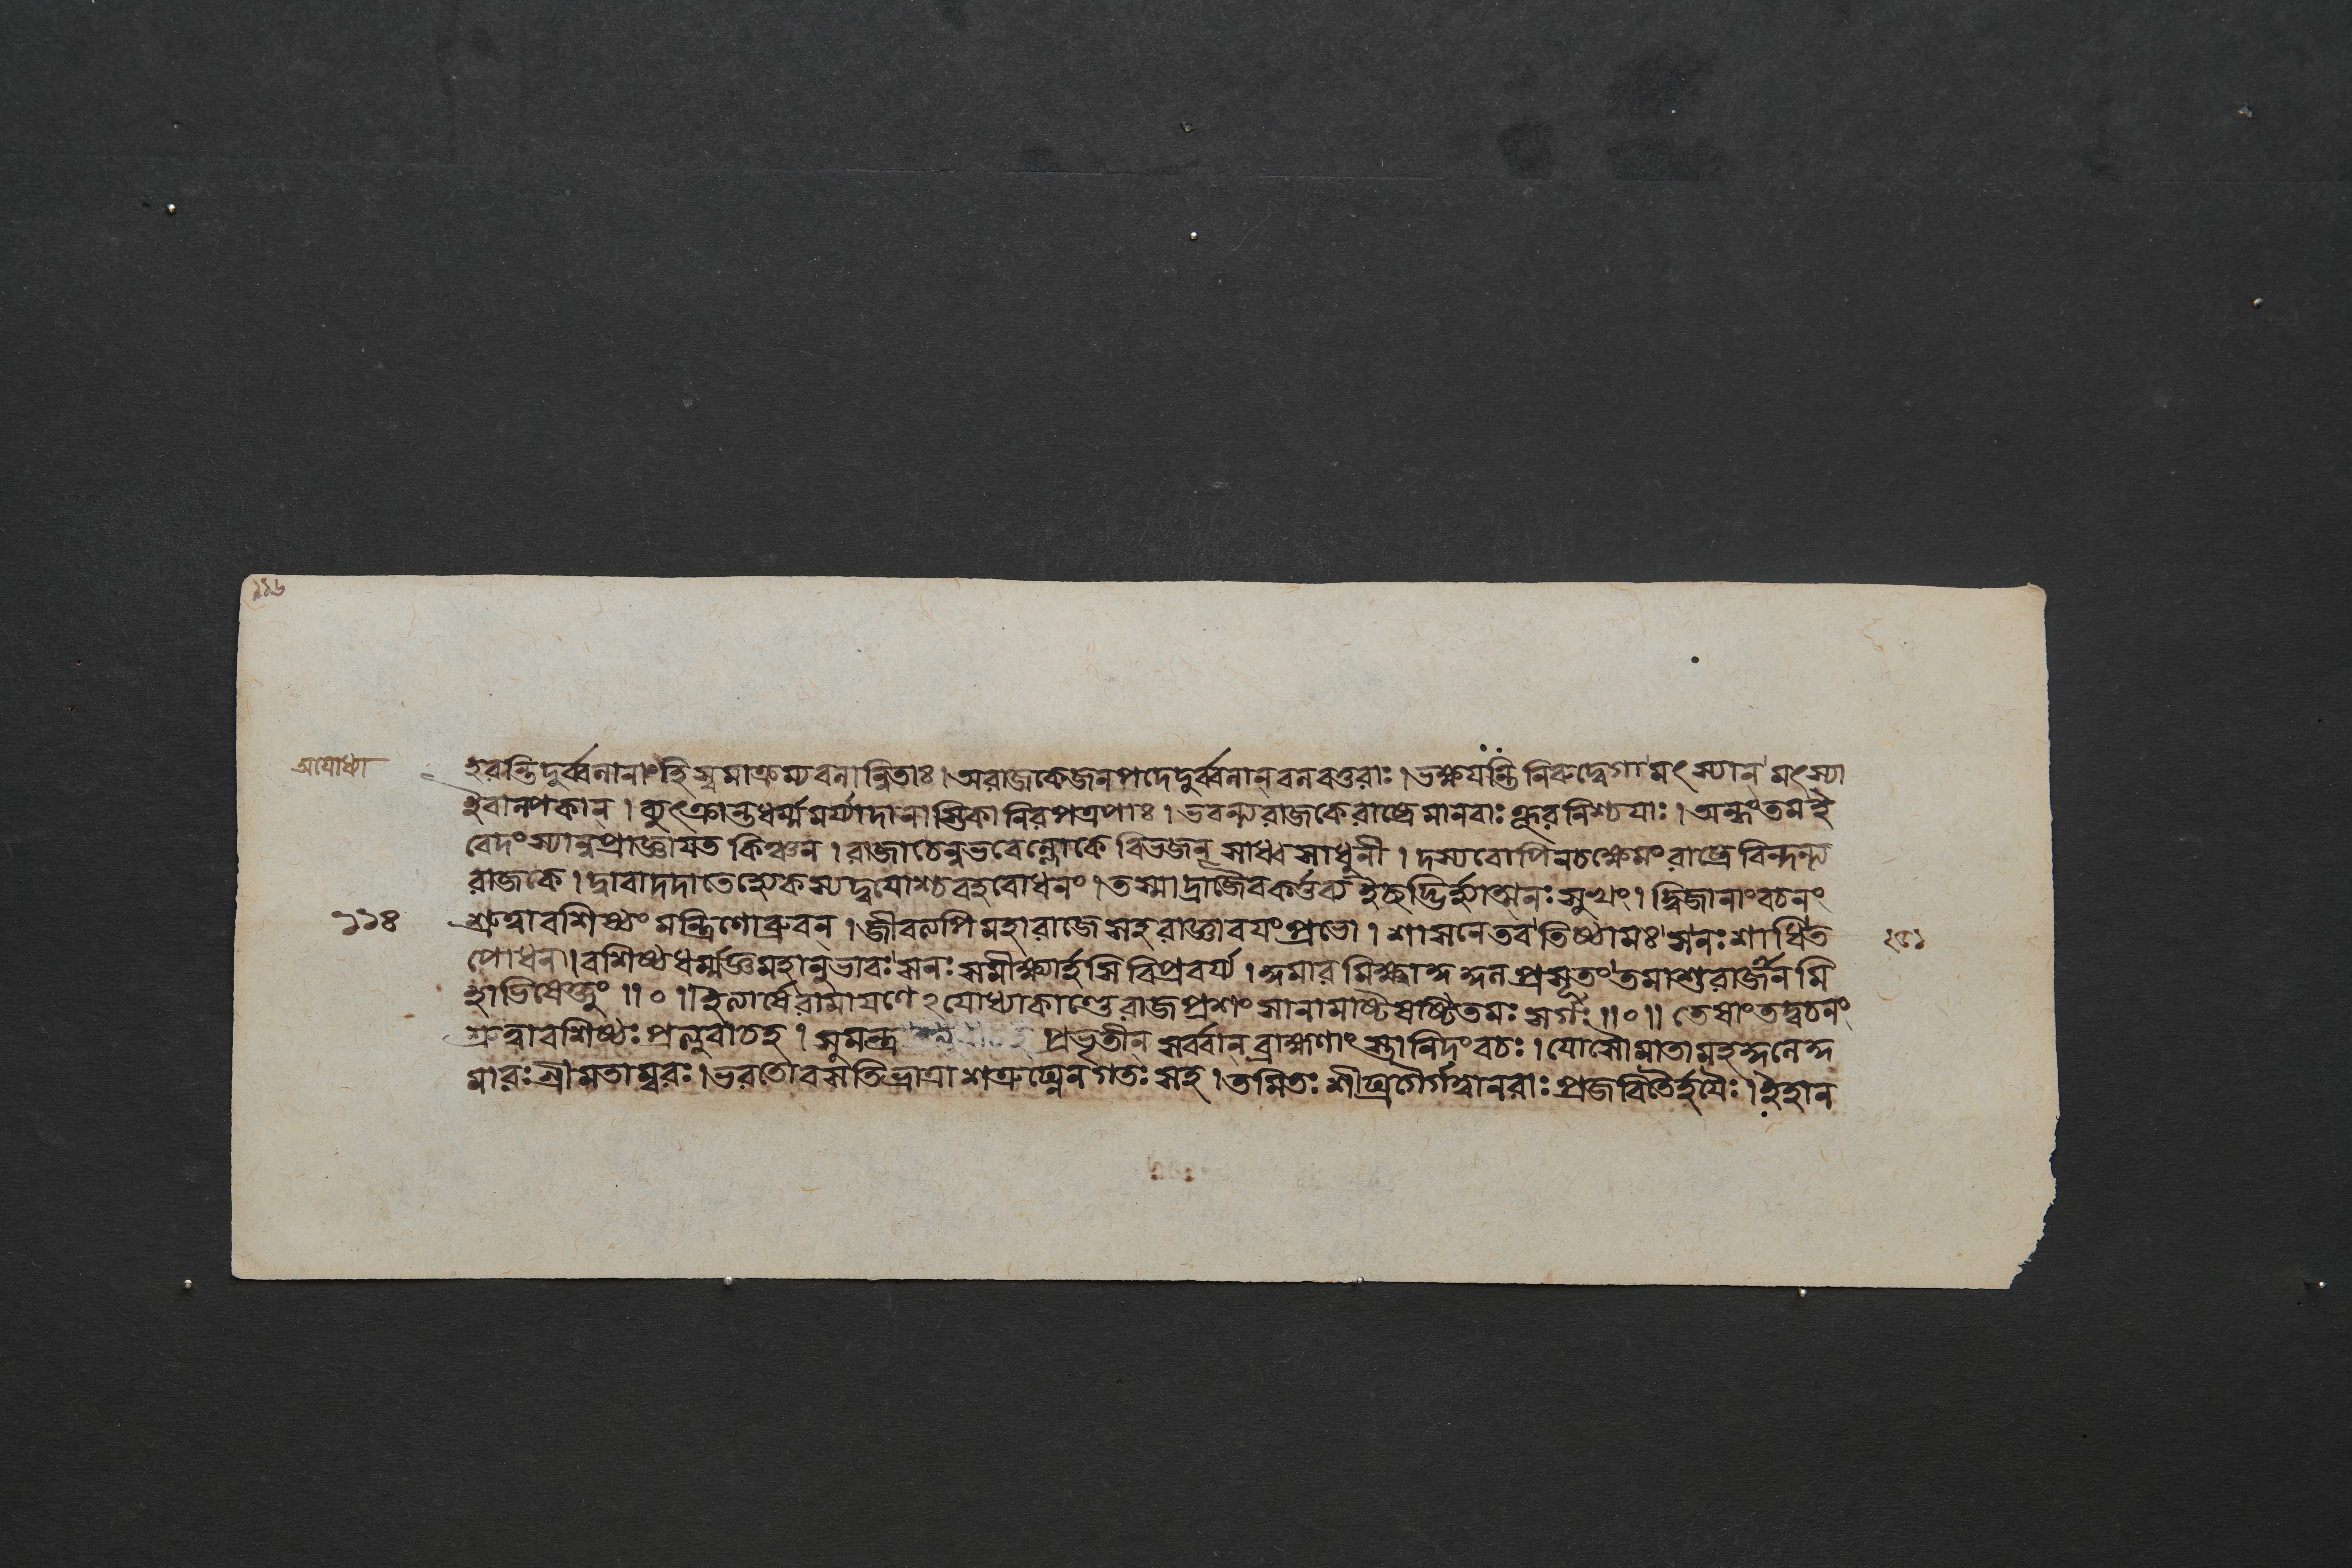 ১১৬
অযোধ্যা
হরন্তিদুর্ব্বলানাংহি স্বমাক্রম্যবলান্বিতাঃ। অরাজকেজনপদেদুর্ব্বলান্বলবত্তরাঃ। ভক্ষযন্তি নিরুদ্বেগামৎস্যান্মৎস্যা
ইবাল্পকান্। ব্যুৎক্রান্তধর্ম্মমর্য্যাদানাস্তিকা নিরপত্রপাঃ। ভবন্ত্যরাজকেরাষ্ট্রেমানবাঃ ক্রূরনিশ্চযাঃ। অন্ধংতমই
বেদংস্যান্নপ্রাজ্ঞাযত কিঞ্চন। রাজাচেন্নভবেল্লোকে বিভজন্ সাধ্বসাধুনী। দস্যবোপিনচক্ষেমং রাষ্ট্রেবিন্দন্ত্য
রাজকে। দ্বাবাদদাতেহ্যেকস্যদ্বযোশ্চবহবোধনং। তস্মাদ্রাজৈবকর্ত্তব্য ইচ্ছদ্ভির্হ্যাত্মনঃ সুখং। দ্বিজানাংবচনং
১১৪
শ্রুত্বাবশিষ্ঠং মন্ত্রিণোব্রুবন্। জীবত্যপি মহারাজে সহ রাজ্ঞাবযংপ্রভো। শাসনেতবতিষ্ঠামঃ সনঃ শাধিত
২৫১
পোধন। বশিষ্ঠধর্ম্মজ্ঞমহানুভাবঃ সনঃ সমীক্ষ্যার্হসি বিপ্রবর্য্য। কুমারমিক্ষ্বাকুকুলপ্রসূতং তমাশুরাজানমি
হাভিষেক্তুং॥০॥ ইত্যার্ষেরামাযণেঽযোধ্যাকাণ্ডেরাজপ্রশংসানামাষ্টষষ্টিতমঃ সর্গঃ॥০॥ তেষাংতদ্বচনং
শ্রুত্বাবশিষ্ঠঃ প্রত্যুবাচহ। সুমন্ত্র প্রভৃতীন্ সর্ব্বান্ ব্রাহ্মণাংস্তানিদংবচঃ। যোসৌমাতামহকুলেকু
মারঃ শ্রীমতাম্বরঃ। ভরতোবসতিভ্রাত্রা শত্রুঘ্নেনগতঃ সহ। তমিতঃ শীঘ্রগৈর্গত্বানরাঃ প্রজবিতৈর্হযৈঃ। ইহান